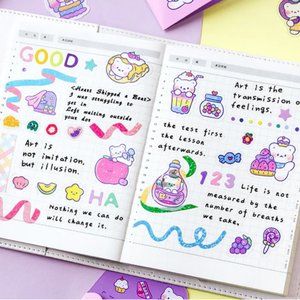 GOOD
<Heart Skipped a Beat>
I was struggling to
get in
Left waiting outside
your door
Art is
not imitation,
but illusion.
HA
Nothing we can do
will change it.
Art is the
transmission of
feelings.
the test first
the lesson
afterwards.
123
Life is not
measured by the
number of breaths
we take.